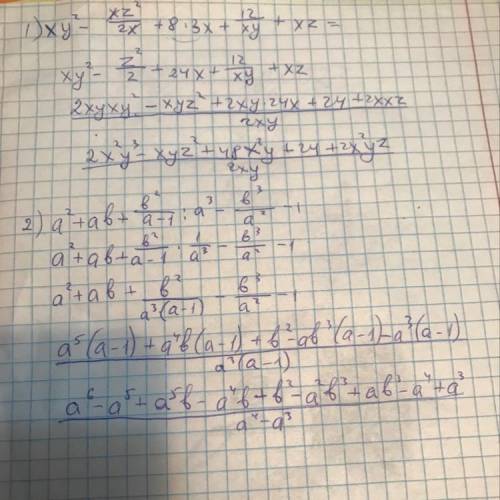 1) xy² - xz²/2x + 8·3x + 12/xy + xz =
xy² - z²/2 + 24x + 12/xy + xz
(2xyxy² - xyz² + 2xy·24x + 24 + 2xxz)/2xy
(2x²y³ - xyz² + 48x²y + 24 + 2x²yz)/2xy
2) a² + ab + b²/a-1 : a³ - b³/a² - 1
a² + ab + b²/a-1 · 1/a³ - b³/a² - 1
a² + ab + b²/a³(a-1) - b³/a² - 1
(a⁵(a-1) + a⁴b(a-1) + b² - ab³(a-1) - a³(a-1))/a³(a-1)
(a⁶ - a⁵ + a⁵b - a⁴b + b² - a²b³ + ab³ - a⁴ + a³)/a⁴ - a³